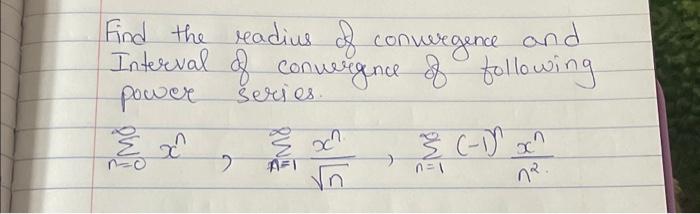 Find the readius of convergence and
Interval of convergnce of following
power series.
∞∑n=0 xⁿ , ∞∑n=1 xⁿ/√n , ∞∑n=1 (-1)ⁿ xⁿ/n².